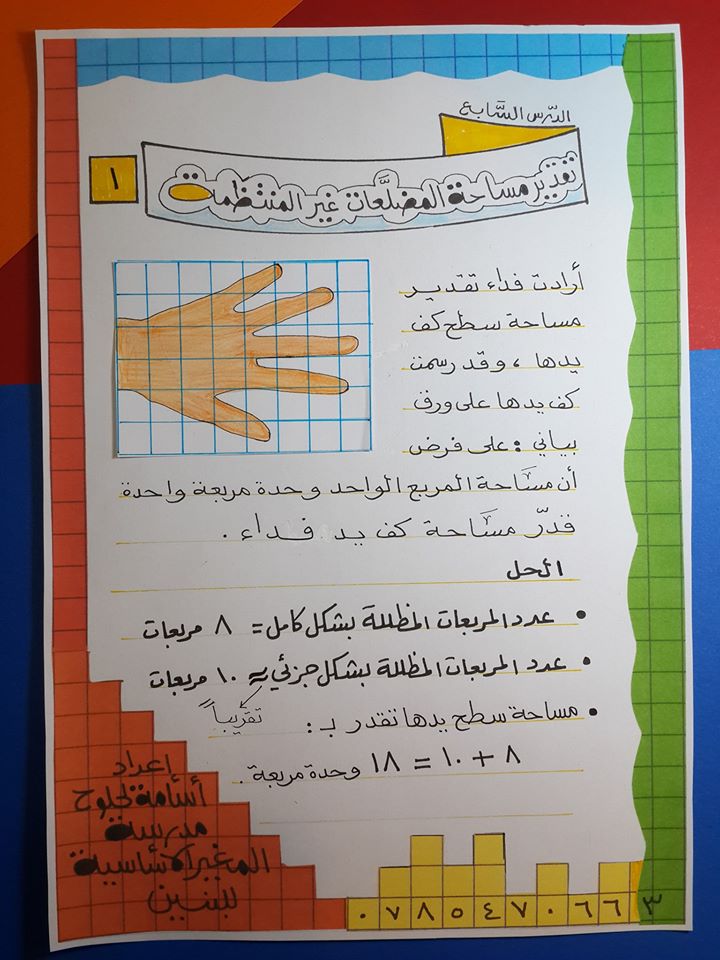 الدّرس السَّابع
١
تقدير مساحة المضلَّعات غير المنتظمة
أرادت فداء تقدير
مساحة سطح كف
يدها ، وقد رسمت
كف يدها على ورق
بياني : على فرض
أن مساحة المربع الواحد وحدة مربعة واحدة
قدّر مساحة كف يد فداء .
الحل
• عدد المربعات المظللة بشكل كامل = ٨ مربعات
• عدد المربعات المظللة بشكل جزئي ≈ ١٠ مربعات
تقريباً
• مساحة سطح يدها تقدر بـ :
٨ + ١٠ = ١٨ وحدة مربعة .
إعداد
أسامة جلوح
مدرسة
المغير الأساسية
للبنين
٠٧٨٥٤٧٠٦٦٣